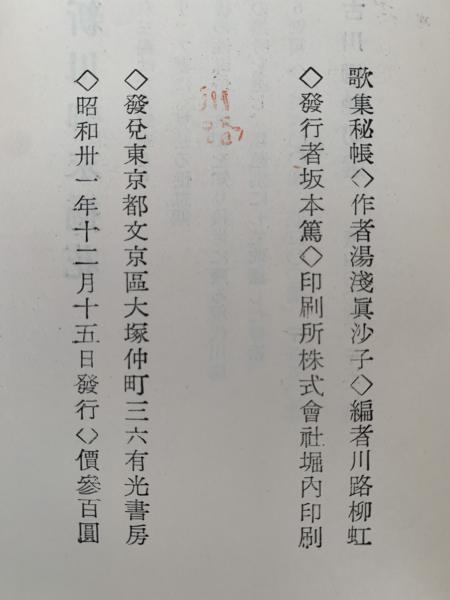 歌集秘帳◇作者湯淺眞沙子◇編者川路柳虹
◇發行者坂本篤◇印刷所株式會社堀内印刷
川路
◇發兌東京都文京區大塚仲町三六有光書房
◇昭和卅一年十二月十五日發行◇價參百圓